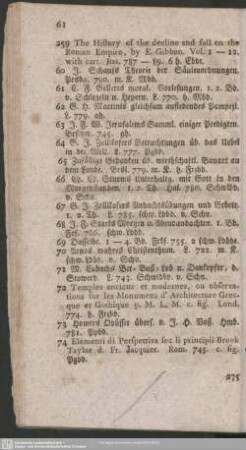 61
259 The History of the decline and fall on the
Roman Empire, by E. Gibbon. Vol. 1 — 12.
with cart. Bas. 787 — 89. 6 h. Ebbr.
60 J. Schaufs Theorie der Säulenordnungen.
Presb. 790. m. K. Mbd.
61 C. F. Gellerts moral. Vorlesungen. 1. 2. Bd.
v. Schlegeln u. Heyern. L. 770. h. Mbd.
62 G. H. Martinis gleichsam auflebendes Pompeji.
L. 779. ob.
63 J. F. W. Jerusalems Samml. einiger Predigten.
745. gh.
64 G. J. Zollikofers Betrachtungen üb. das Uebel
in der Welt. L. 777. Pgbd.
65 Zufällige Gedanken üb. wirthschaftl. Bauart auf
dem Lande. Brsl. 779. m. K. h. Frzb.
66 Unterhalt. mit Gott in den
Morgenstunden. 1. 2. Th. Hal. 780. Schwlbd.
v. Schn.
67 G. J. Zollikofers Andachtsübungen und Gebete.
1. 2. Th. L. 785. schw. Ldbd. v. Schn.
68 J. F. Starks Morgen u. Abendandachten. 1. Bd.
Frf. 766. schw. Ldbd.
69 Dasselbe. 1 — 4. Bd. Frkf. 755. 2 schw. Ldbde.
70 Arnds wahres Christenthum. L. 722. m. K.
schw. Ldbd. v. Schn.
71 M. Cubachs Bet- Buß- Lob u. Dankopfer, d.
L. 743. Schwlbd. v. Schn.
72 Temples anciens et modernes, ou observations
sur les Monumens d'Architecture Grecque
et Gothique p. M. L. M. c. fig. Lond.
774. h. Frzbd.
73 Homers Odüssee übers. v. J. H. Voß. Hmb.
781. Ppbd.
74 Elementi di Perspettiva sec li principii Brook
Taylor d. Fr. Jacquier. Rom. 745. c. fig.
Pgbd.
275